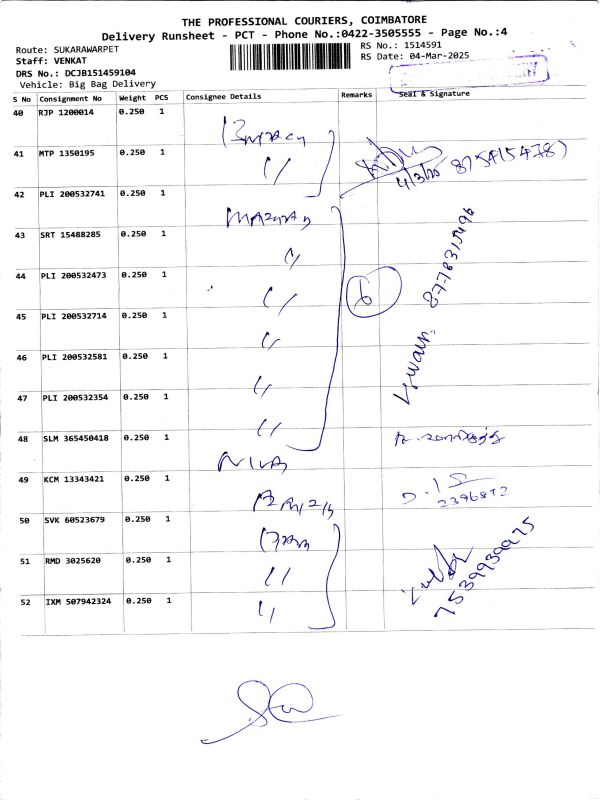 THE PROFESSIONAL COURIERS, COIMBATORE
Delivery Runsheet - PCT - Phone No.:0422-3505555 - Page No.:4
Route: SUKARAWARPET
RS No.: 1514591
Staff: VENKAT
RS Date: 04-Mar-2025
DRS No.: DCJB151459104
Vehicle: Big Bag Delivery
S No Consignment No Weight PCS Consignee Details Remarks Seal & Signature
40 RJP 1200014 0.250 1
41 MTP 1350195 0.250 1 〃
4/3/25
42 PLI 200532741 0.250 1
43 SRT 15488285 0.250 1 〃
44 PLI 200532473 0.250 1 〃 6
45 PLI 200532714 0.250 1 〃
46 PLI 200532581 0.250 1 〃
47 PLI 200532354 0.250 1 〃
48 SLM 365450418 0.250 1
49 KCM 13343421 0.250 1
50 SVK 60523679 0.250 1
51 RMD 3025620 0.250 1 〃
7539939975
52 IXM 507942324 0.250 1 〃